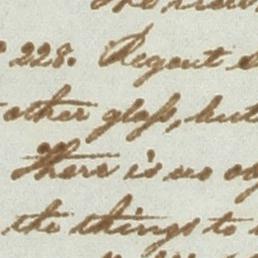 228. Regent
other glass, but
There is no
the things to